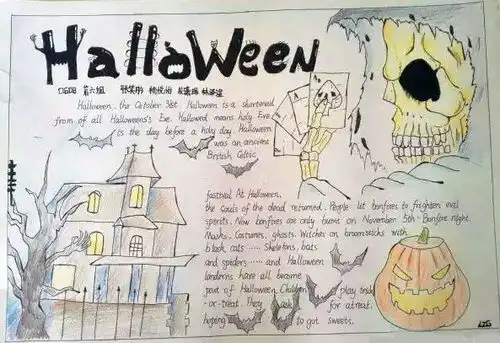 HalloWeen
第六组
Halloween.. the October 31st. Halloween is a shortened
from of all Halloweens's Eve. Hallowed means holy Eve
is the day before a holy day. Halloween
was an ancient
British Celtic
festival At Halloween,
the souls of the dead returned. People lit bonfires to frighten evil
spirits. Now bonfires are only burnt on November 5th - Bonfire night.
Masks, Costumes, ghosts. Witches on broomsticks with
black cats ...... Skeletons, bats
and spiders ...... and Halloween
lanterns have all become
part of Halloween Children play trick
-or-treat. They ask for a treat.
hoping to got sweets.